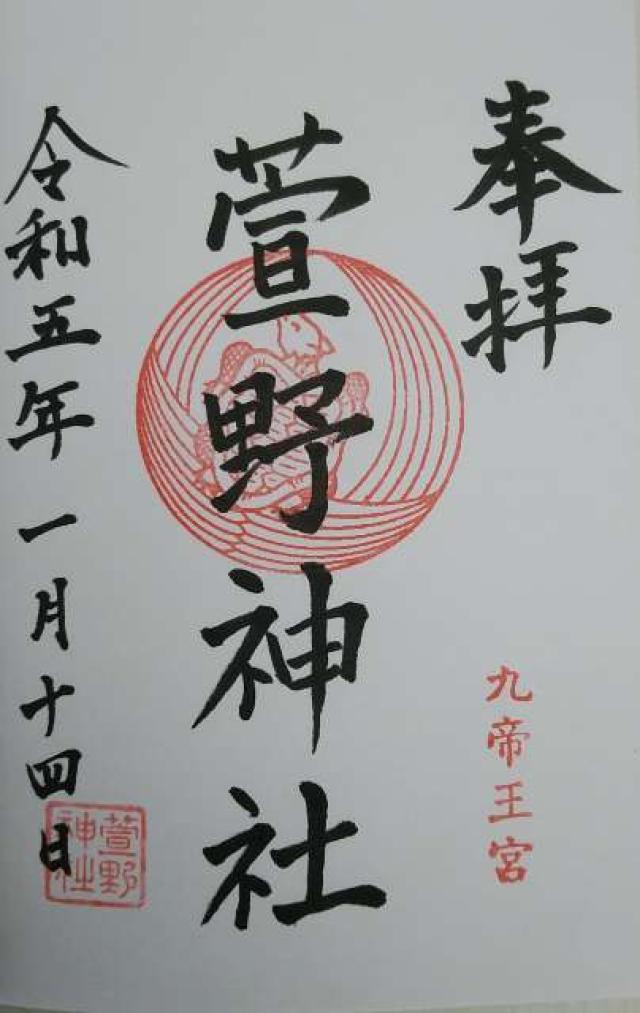 奉拝
九帝王宮
萱野神社
令和五年一月十四日
萱野
神社